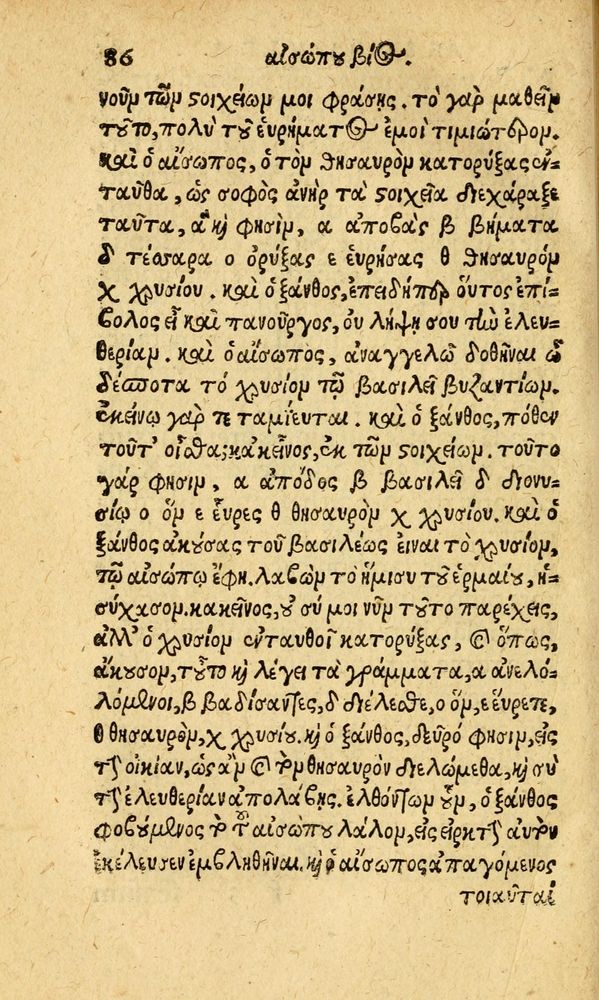 86 αἰσώπου βίος.
νοῦν τῶν στοιχείων μοι φράσῃς. τὸ γὰρ μαθεῖν
τοῦτο, πολὺ τοῦ εὑρήματος ἐμοὶ τιμιώτερον.
καὶ ὁ αἴσωπος, ὁ τὸν θησαυρὸν κατορύξας ἐν-
ταῦθα, ὡς σοφὸς ἀνὴρ τὰ στοιχεῖα διεχάραξε
ταῦτα, ἃ καὶ φησὶν, α ἀποβὰς β βήματα
δ τέσσαρα ο ὀρύξας ε εὑρήσεις θ θησαυρὸν
χ χρυσίου. καὶ ὁ ξάνθος, ἐπειδήπερ οὕτος ἐπί-
βολος εἶ καὶ πανοῦργος, οὐ λήψῃ σου τὴν ἐλευ-
θερίαν. καὶ ὁ αἴσωπος, ἀναγγελῶ δοθῆναι ὦ
δέσποτα τὸ χρυσίον τῷ βασιλεῖ βυζαντίων.
ἐκείνῳ γὰρ τεταμίευται. καὶ ὁ ξάνθος, πόθεν
τοῦτ' οἶσθα; κἀκεῖνος, ἐκ τῶν στοιχείων. τοῦτο
γάρ φησιν, α ἀπόδος β βασιλεῖ δ διονυ-
σίῳ ο ὃν ε εὗρες θ θησαυρὸν χ χρυσίου. καὶ ὁ
ξάνθος ἀκούσας τοῦ βασιλέως εἶναι τὸ χρυσίον,
τῷ αἰσώπῳ ἔφη. λαβὼν τὸ ἥμισυ τοῦ ἑρμαίου, ἡ-
σύχασον. κἀκεῖνος, οὐ σύ μοι νῦν τοῦτο παρέχεις,
ἀλλ' ὁ χρυσίον ἐνταυθοῖ κατορύξας, καὶ ὅπως,
ἄκουσον, τοῦτο καὶ λέγει τὰ γράμματα, α ἀνελό-
λόμενοι, β βαδίσαντες, δ διέλεσθε, ο ὃν, ε εὕρετε,
θ θησαυρὸν, χ χρυσίου. καὶ ὁ ξάνθος, δεῦρό φησιν, εἰς
τὴν οἰκίαν, ὡς ἂν καὶ τὸν θησαυρὸν διελώμεθα, καὶ σὺ
τὴν ἐλευθερίαν ἀπολάβῃς. ἐλθόντων οὖν, ὁ ξάνθος
φοβούμενος τὸ τοῦ αἰσώπου λάλον, εἰς εἱρκτὴν αὐτὸν
ἐκέλευσεν ἐμβληθῆναι. καὶ ὁ αἴσωπος ἀπαγόμενος
τοιαῦται